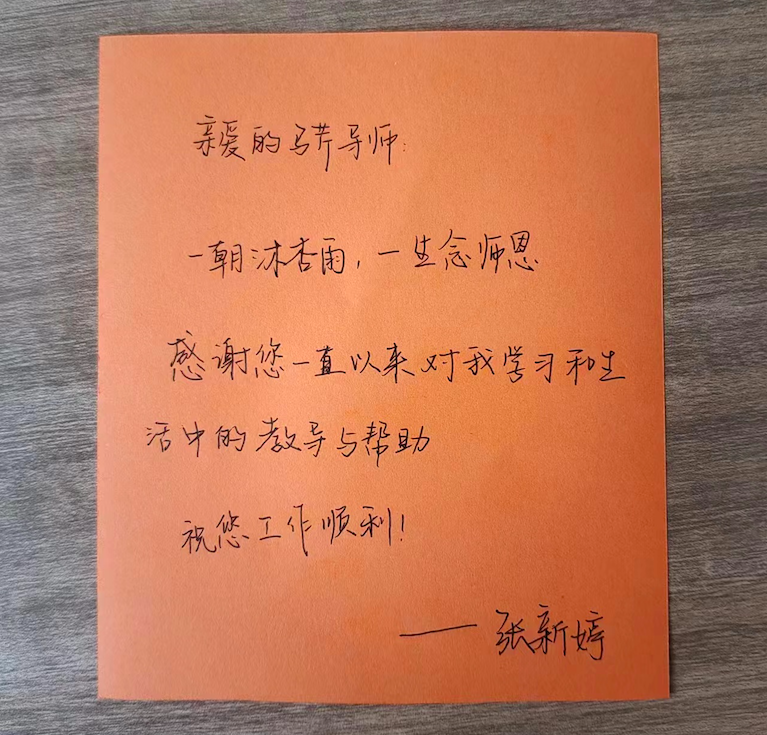 亲爱的马芹导师:
一朝沐杏雨,一生念师恩
感谢您一直以来对我学习和生
活中的教导与帮助
祝您工作顺利!
——张新婷